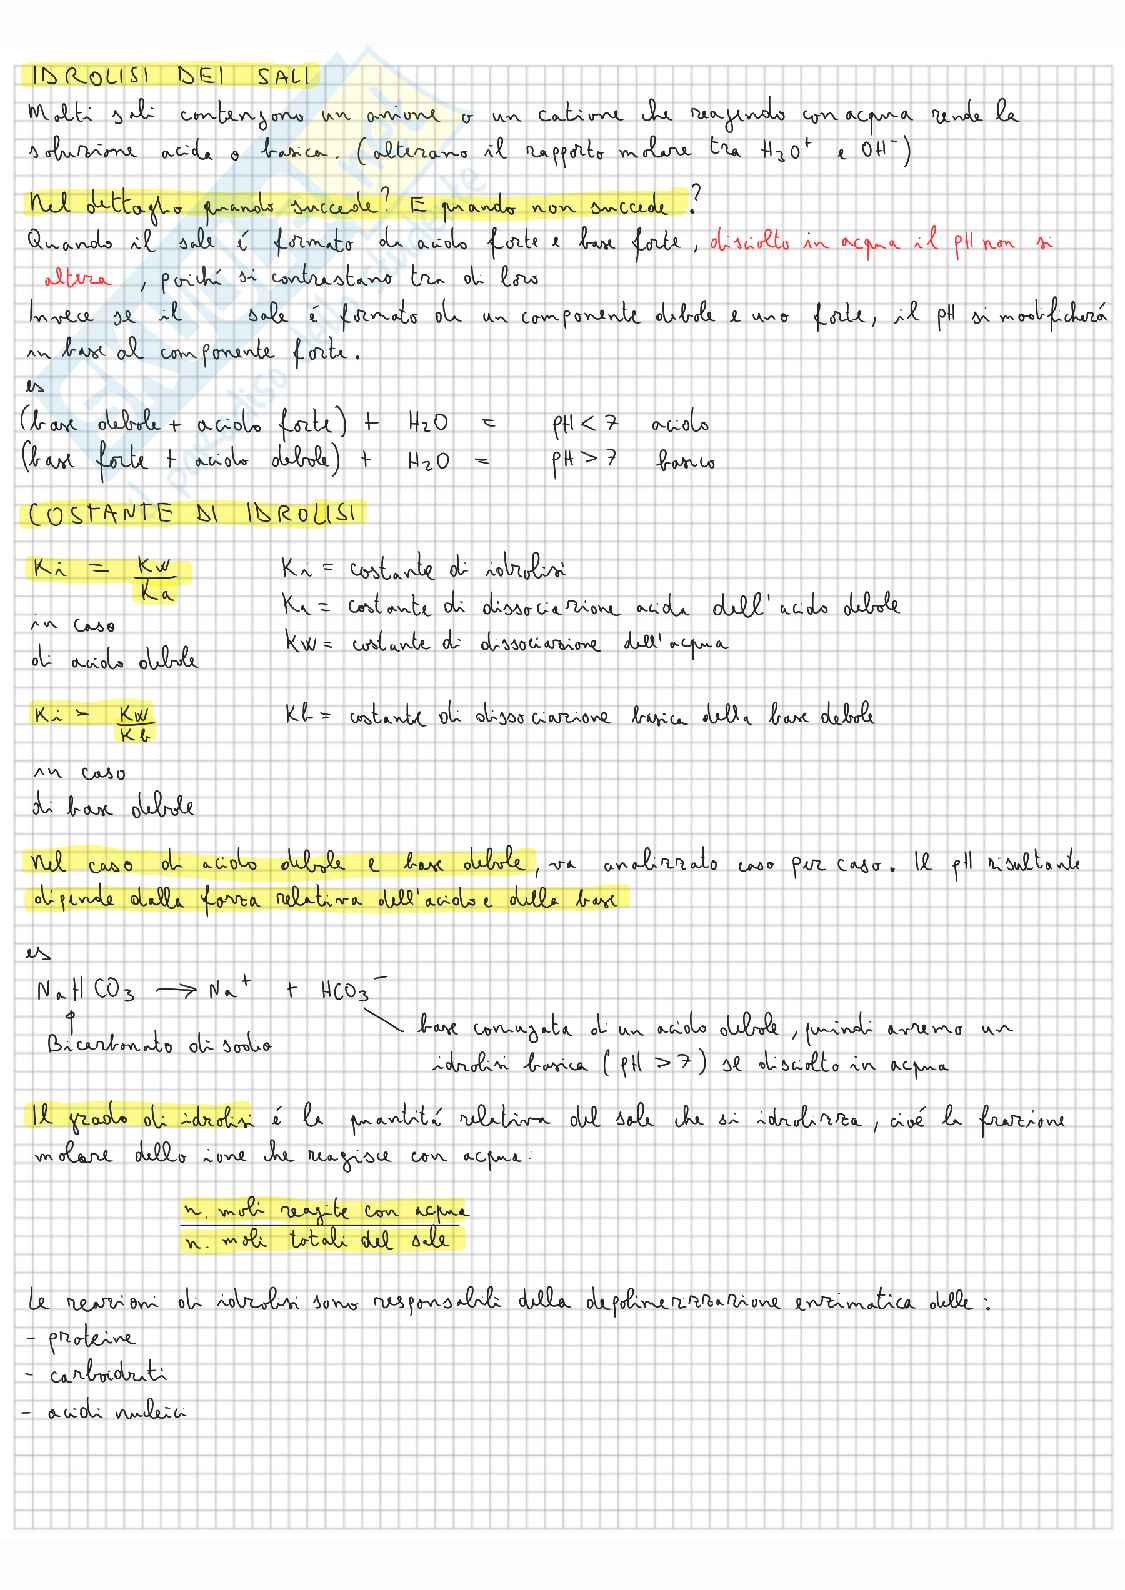 IDROLISI DEI SALI
Molti sali contengono un anione o un catione che reagendo con acqua rende la
soluzione acida o basica. (alterano il rapporto molare tra H₃O⁺ e OH⁻)
Nel dettaglio quando succede? E quando non succede?
Quando il sale é formato da acido forte e base forte, disciolto in acqua il pH non si
altera, poiché si contrastano tra di loro
Invece se il sale é formato da un componente debole e uno forte, il pH si modificherá
in base al componente forte.
es
(base debole + acido forte) + H₂O = pH < 7 acido
(base forte + acido debole) + H₂O = pH > 7 basico
COSTANTE DI IDROLISI
Ki = Kw/Ka Ki = costante di idrolisi
Ka = costante di dissociazione acida dell'acido debole
in caso
Kw = costante di dissociazione dell'acqua
di acido debole
Ki = Kw/Kb Kb = costante di dissociazione basica della base debole
in caso
di base debole
Nel caso di acido debole e base debole, va analizzato caso per caso. Il pH risultante
dipende dalla forza relativa dell'acido e della base
es
NaHCO₃ → Na⁺ + HCO₃⁻
base coniugata di un acido debole, quindi avremo un
Bicarbonato di sodio
idrolisi basica (pH > 7) se disciolto in acqua
Il grado di idrolisi é la quantitá relativa del sale che si idrolizza, cioé la frazione
molare dello ione che reagisce con acqua.
n. moli reagite con acqua
n. moli totali del sale
Le reazioni di idrolisi sono responsabili della depolimerizzazione enzimatica delle:
- proteine
- carboidrati
- acidi nucleici